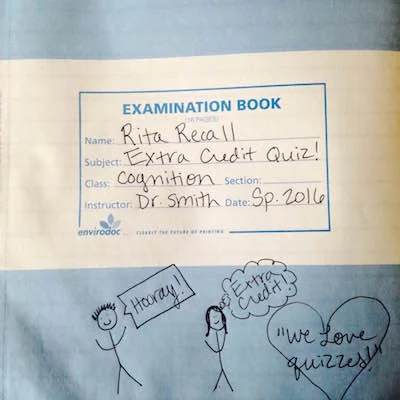 EXAMINATION BOOK
(16 PAGES)
Name: Rita Recall
Subject: Extra Credit Quiz!
Class: Cognition Section:
Instructor: Dr. Smith Date: Sp. 2016
envirodoc CLEARLY THE FUTURE OF PRINTING
Hooray!
Extra
Credit!
"We Love
quizzes!"